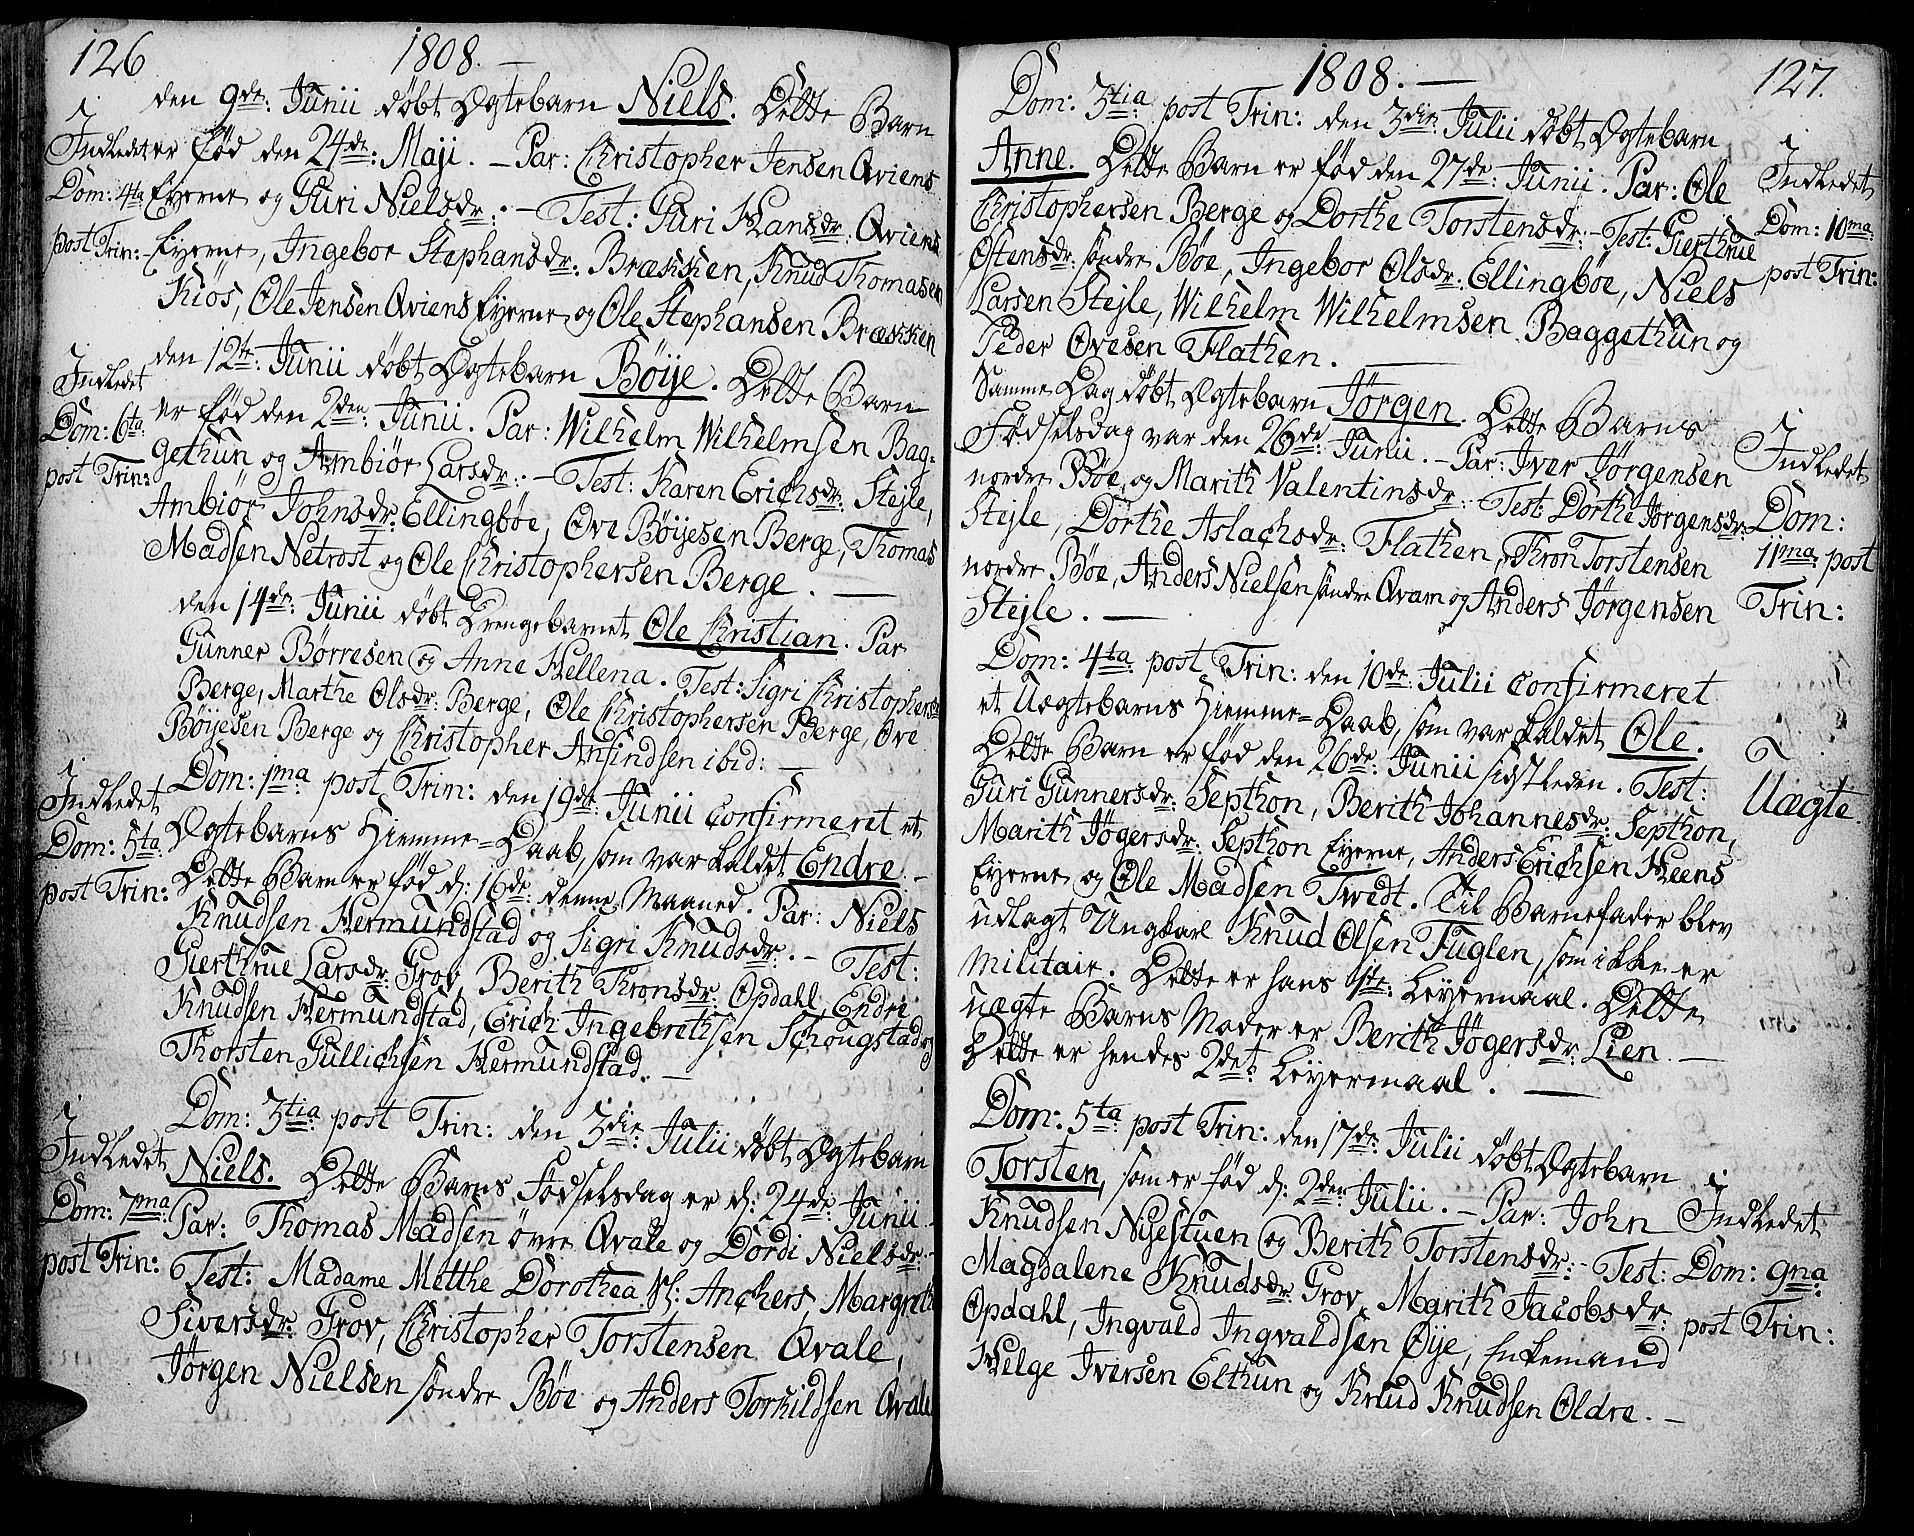 126
1808. —
den 9de: Junii døbt Ægtebarn Niels. Dette Barn
er fød den 24de: Maji. — Par: Christopher Jensen Qviens
Eyerne og Guri Nielsdr: . — Test: Guri Hansdr: Qviens
Eyerne, Ingebor Stephansdr: Brækken, Knud Thomasen
Kiøs, Ole Jensen Qviens Eyerne og Ole Stephansen Brækken
i
Indledet
Dom: 4ta
post Trin:
den 12te: Junii døbt Ægtebarn Böije. Dette Barn
er fød den 2den: Junii. Par: Wilhelm Wilhelmsen Bag-
gethun og Ambiør Larsdr: . — Test: Karen Erichsdr: Stejle,
Ambiør Johnsdr: Ellingbøe, Ove Böijesen Berge, Thomas
Madsen Netrost og Ole Christophersen Berge. —
i
Indledet
Dom: 6ta:
post Trin:
den 14de: Junii døbt Drengebarnet Ole Christian. Par
Gunner Børresen og Anne Hellena. Test: Sigri Christophersdr
Berge, Marthe Olsdr: Berge, Ole Christophersen Berge, Ove
Böijesen Berge og Christopher Anfindsen ibid: —
Dom: 1ma post Trin: den 19de: Junii confirmeret et
Ægtebarns Hiemme-Daab, som var kaldet Endre. —
Dette Barn er fød d: 16de: denne Maaned. Par: Niels
Knudsen Hermundstad og Sigri Knudsdr: . — Test:
Gierthrue Larsdr: Grov, Berith Thronsdr: Opdahl, Endri
Knudsen Hermundstad, Erich Ingebrethsen Schougstad og
Thorsten Gullichsen Hermundstad. —
i
Indledet
Dom: 5ta:
post Trin:
Dom: 3tia: post Trin: den 3die: Julii døbt Ægtebarn
Niels. Dette Barns Fødselsdag er d: 24de: Junii —
Par: Thomas Madsen øvre Qvale og Dordi Nielsdr: —
Test: Madame Metthe Dorothea Sl: Anchers, Margrethe
Siversdr: Grov, Christopher Torstensen Qvale,
Jørgen Nielsen søndre Bøe og Anders Torkildsen Qvale
i
Indledet
Dom: 7ma:
post Trin:
1808. —
127.
Dom: 3tia post Trin: den 3die: Julii døbt Ægtebarn
Anne. Dette Barn er fød den 27de: Junii. Par: Ole
Christophersen Berge og Dorthe Torstensdr: — Test: Gierthrue
Østensdr: søndre Bøe, Ingebor Olsdr: Ellingbøe, Niels
Larsen Stejle, Wilhelm Wilhelmsen Baggethun og
Peder Ovesen Flathen. —
i
Indledet
Dom: 10ma:
post Trin:
Samme Dag døbt Ægtebarn Jørgen. Dette Barns
Fødselsdag var den 26de: Junii. — Par: Iver Jørgensen
nordre Bøe, og Marith Valentinsdr: — Test: Dorthe Jørgensdr:
Stejle, Dorthe Aslachsdr: Flathen, Thron Torstensen
nordre Bøe, Anders Nielsen søndre Qvam og Anders Jørgensen
Stejle. —
i
Indledet
Dom:
11ma: post
Trin:
Dom: 4ta: post Trin: den 10de: Julii confirmeret
et Uægtebarns Hiemme-Daab, som var kaldet Ole.
Dette Barn er fød den 26de: Junii sidstleden. Test:
Guri Gunnersdr: Septhon, Berith Johannesdr: Septhon,
Marith Jøgersdr: Septhon Eyerne, Anders Erichsen Heens
Eyerne og Ole Madsen Twedt. Til Barnefader blev
udlagt Ungkarl Knud Olsen Fuglen, som ikke er
Militair. Dette er hans 1ste: Leyermaal. Dette
uægte Barns Moder er Berith Jøgersdr: Lien. —
Dette er hendes 2det: Leyermaal. —
Uægte.
Dom: 5ta: post Trin: den 17de: Julii døbt Ægtebarn
Torsten, som er fød d: 2den: Julii. — Par: John
Knudsen Nigestuen og Berith Torstensdr: — Test:
Magdalene Knudsdr: Grov, Marith Jacobsdr:
Opdahl, Ingvald Ingvaldsen Øije, Enkemand
Helge Iversen Elthun og Knud Knudsen Oldre. —
i
Indledet
Dom: 9na
post Trin: